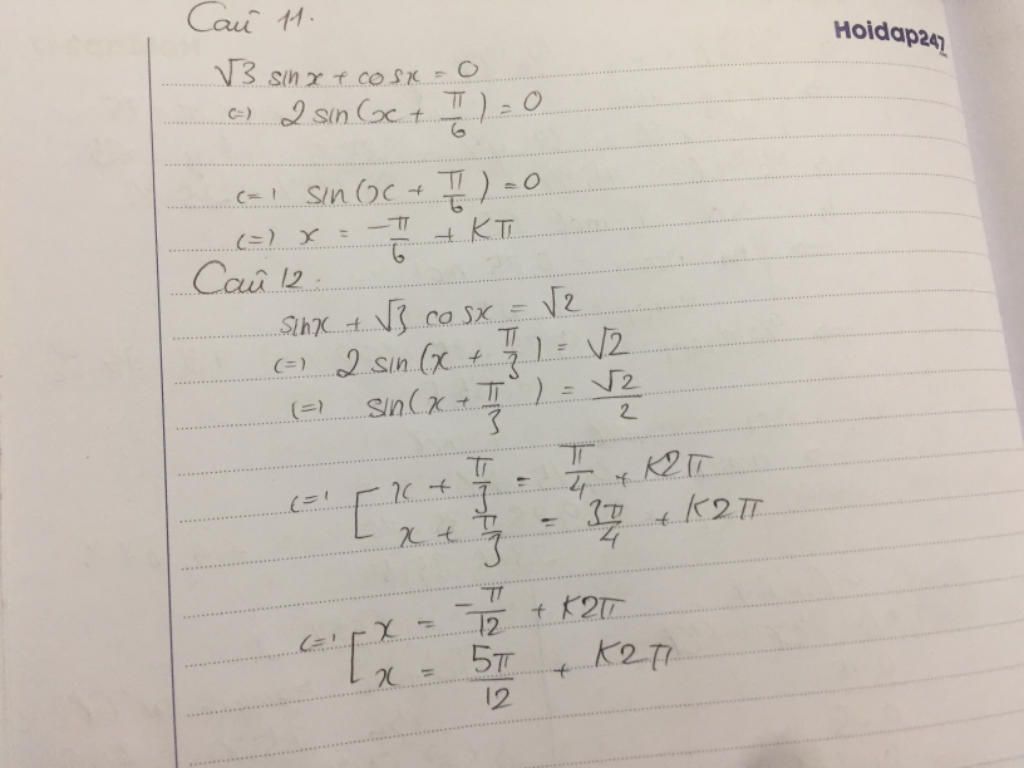 Câu 11.
Hoidap247
√3 sinx + cosx = 0
(=) 2 sin(x + π/6) = 0
(=) sin(x + π/6) = 0
(=) x = -π/6 + Kπ
Câu 12.
sinx + √3 cosx = √2
(=) 2 sin(x + π/3) = √2
(=) sin(x + π/3) = √2/2
(=) [ x + π/3 = π/4 + K2π
x + π/3 = 3π/4 + K2π
(=) [ x = -π/12 + K2π
x = 5π/12 + K2π